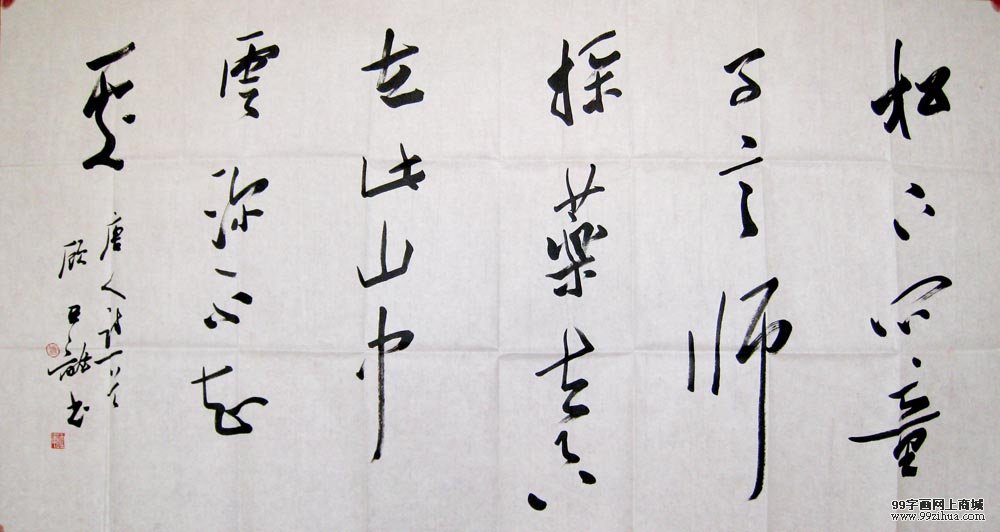 松下问童
子言师
採藥去只
在此山中
雲深不知
處
唐人诗一首
99字画网上商城
www.99zihua.com